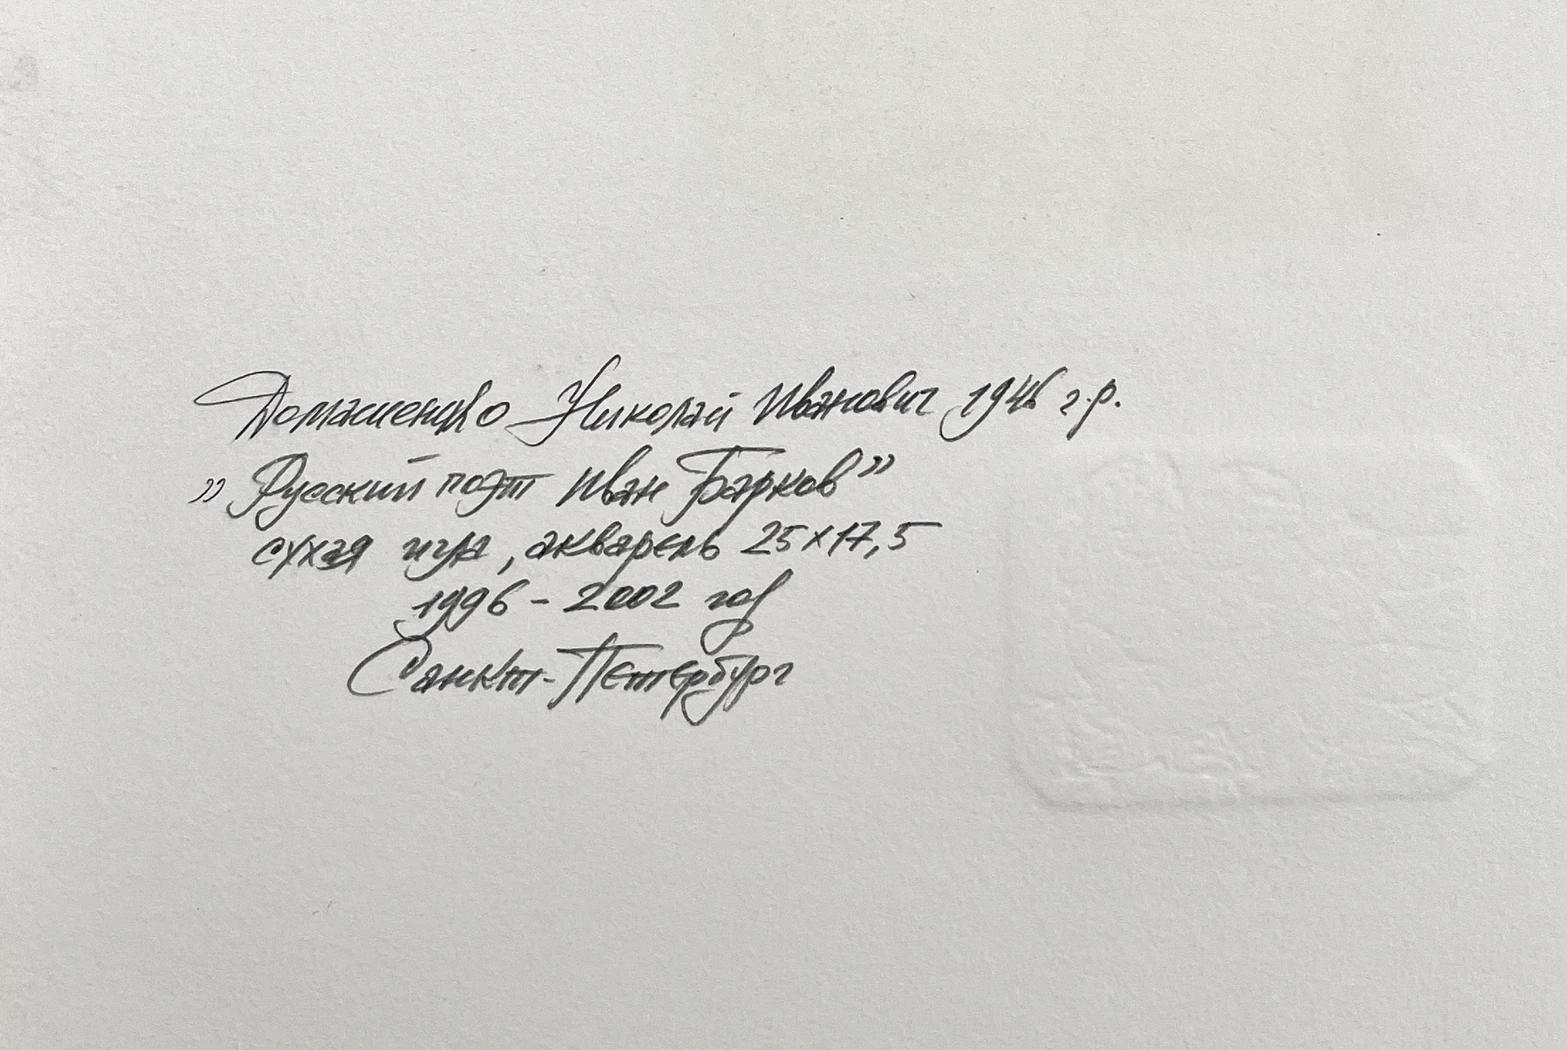 Домашенко Николай Иванович 1946 г.р.
”Русский поэт Иван Барков”
сухая игла, акварель 25×17,5
1996 - 2002 год
Санкт-Петербург